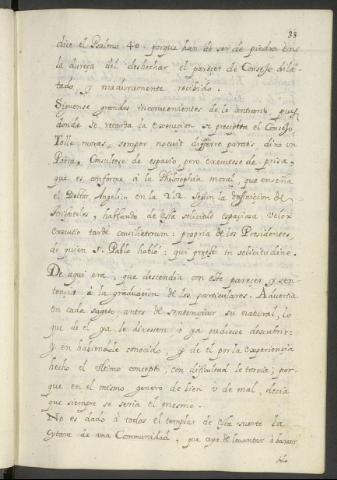 33
dice el Psalmo 40. porque han de ser de piedra en
la dureza del desbechar el parecer de Consejo dila
tado, y maduramente recibido.
Siguense grandes inconvenientes de lo contrario, pues
donde se retarda la execucion se precipita el Consejo.
Tolle moras, semper nocuit differre paratis, dixo un
Poeta, Consultese de espacio, pero executese de prisa,
que es conforme à la Philosophia moral, que enseña
el Doctor Angelico en la 2.2. segun la definicion de
Aristoteles, hablando de esta solicitud espaciosa Velox
executio tarde consiliatorum: propria de los Presidentes,
de quien S. Pablo habló; qui præest in solicitudine.
De aqui era, que descendia con este parecer, y sen-
tencia à la graduacion de los particulares. Advertia
en cada sugeto, antes de sentenciar su natural, lo
que de el ya le dixesen ò ya pudiesse descubrir:
y en haciendole conocido, y de el por la experiencia
hecho el ultimo concepto, con dificultad le torcia; por-
que en el mismo genero de bien ù de mal, decia
que siempre se seria el mesmo.
No es dado à todos el templar de esta suerte la
cytara de una Communidad, que aya de levantar à baxar